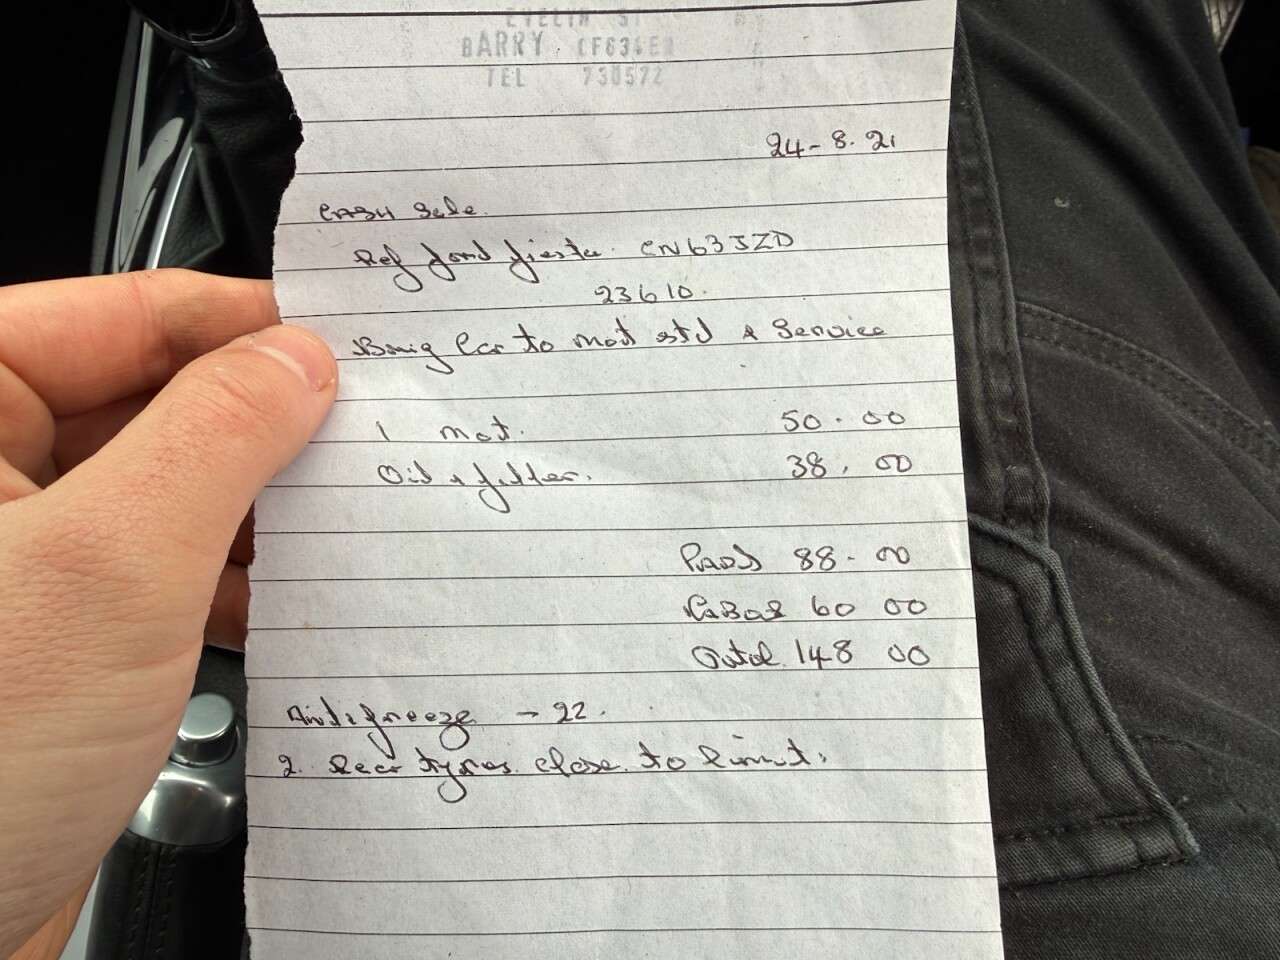 EVELYN ST
BARRY CF63
TEL 730572
24-8.21
CASH Sale.
Ref ford fiesta. CN63JZD
23610.
Bring Car to mot std & Service
1 mot. 50.00
Oil & filter. 38.00
PARTS 88.00
LABOR 60 00
Total 148 00
Antifreeze - 22.
2. Rear tyres close to limit.